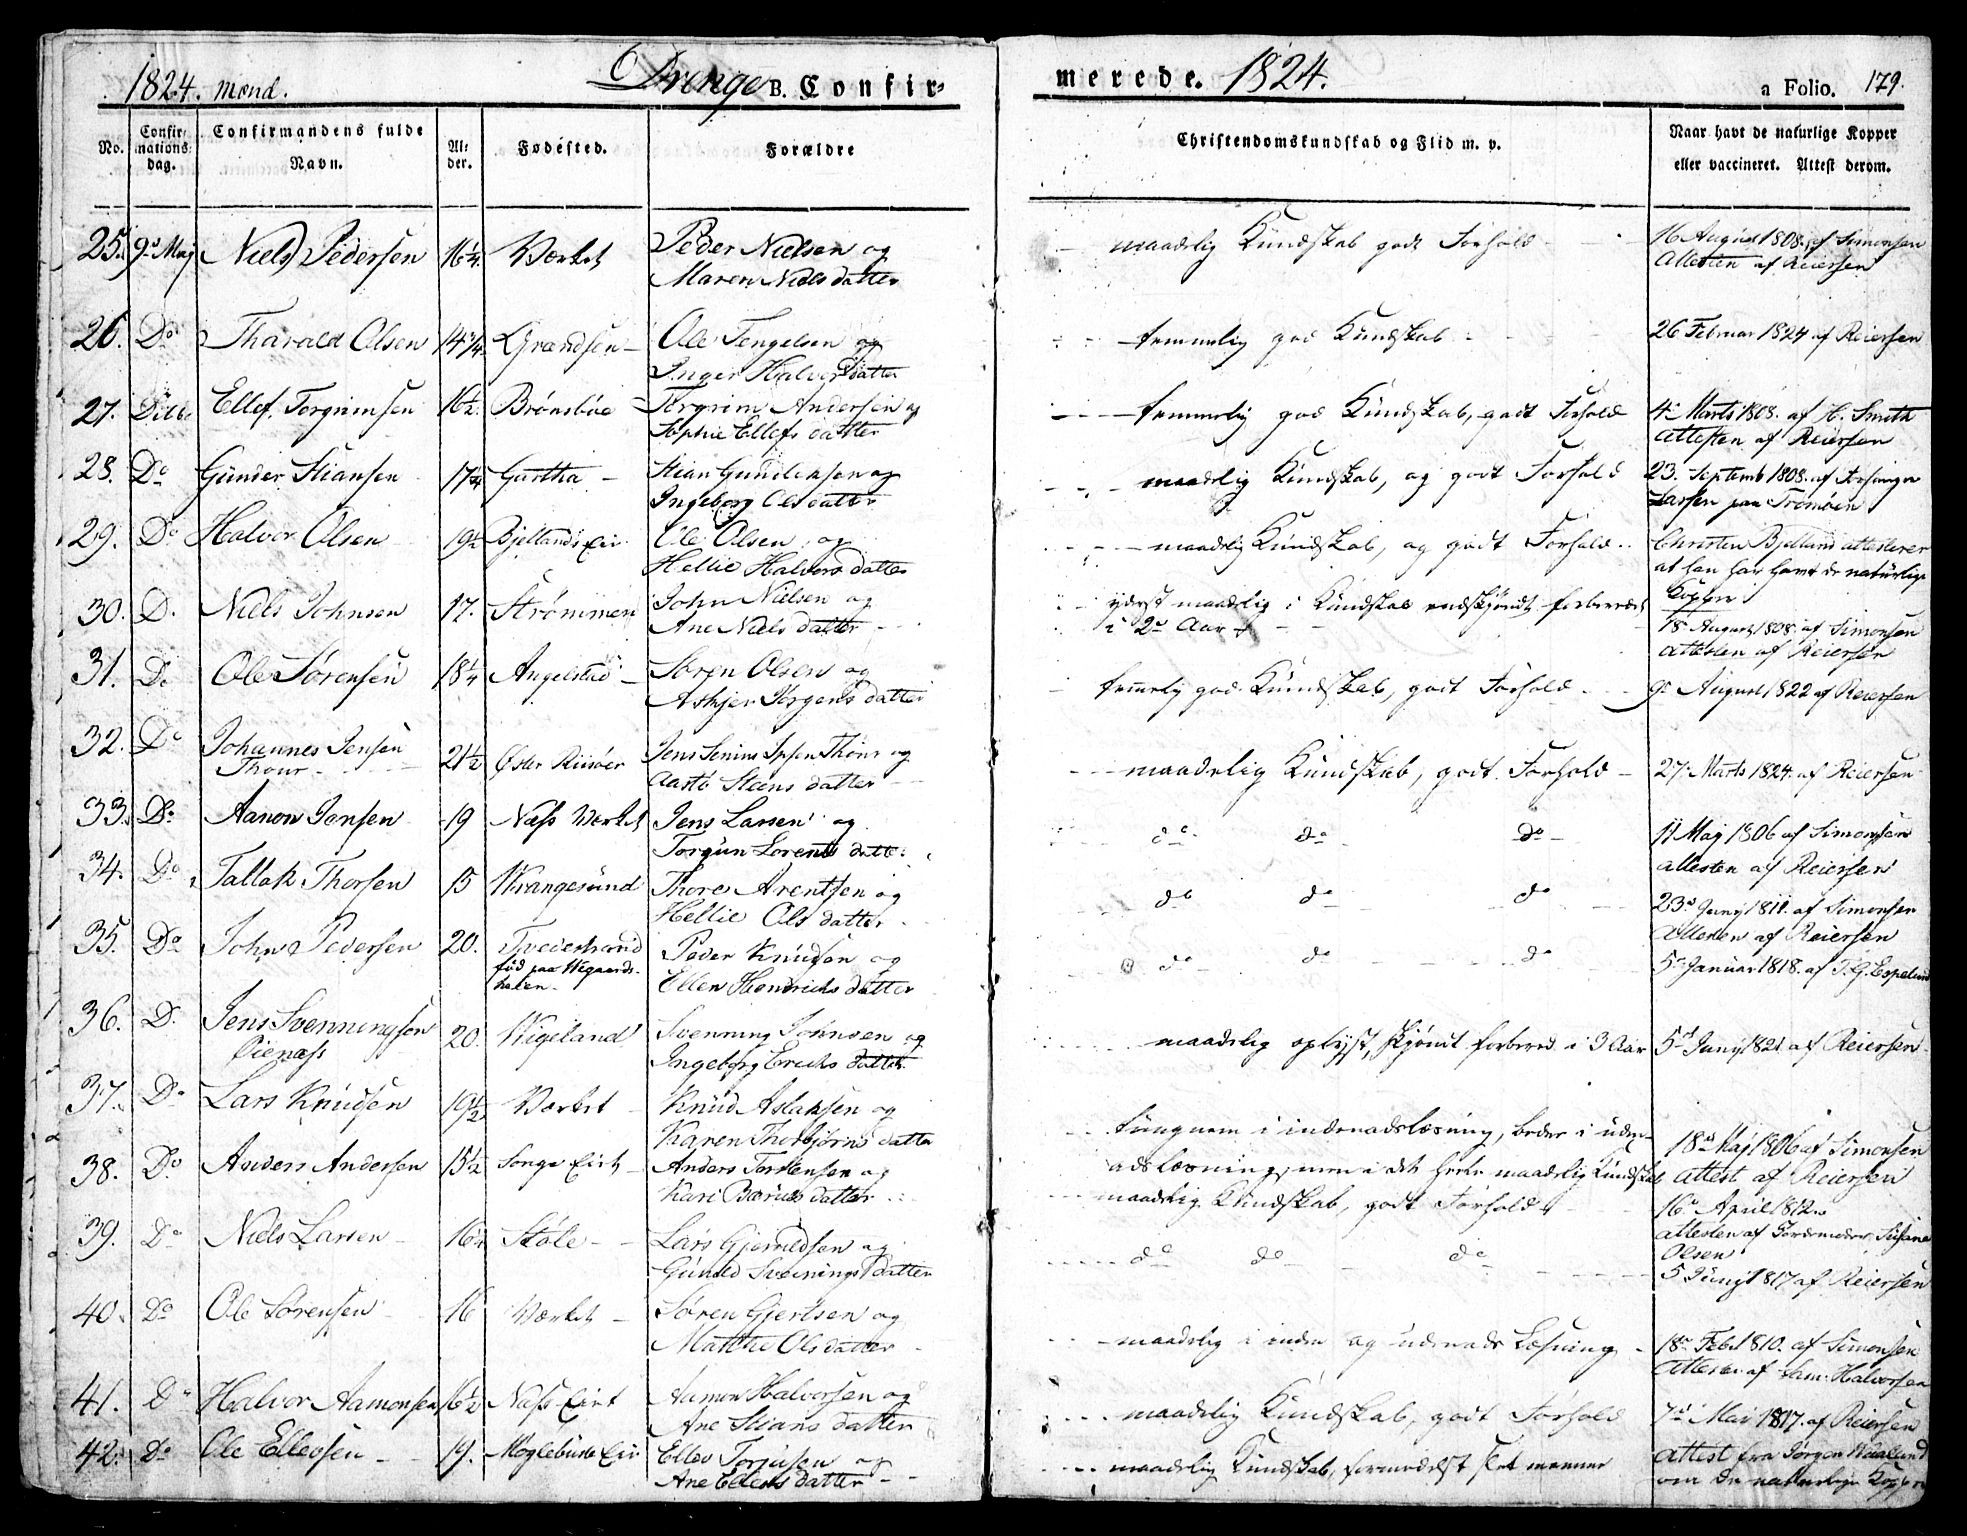 1824. mænd. Drenge B. Confir-
merede. 1824. a Folio. 179.
No. Confirmations dag. Confirmandens fulde Navn. Alder. Fødested. Forældre
Christendomskundskab og Flid m. v. Naar havt de naturlige Kopper eller vaccineret. Attest derom.
25. 9d Maj Niels Pedersen 16 1/4. Værket Peder Nielsen og
Maren Nielsdatter
maadelig Kundskab godt Forhold 16 August 1808. af Simonsen
Attesten af Reiersen
26. Do Tharald Olsen 14 3/4. Grændsen Ole Tengelsen og
Inger Halvorsdatter
temmelig god Kundskab 26 Februar 1824 af Reiersen
27. Ditto Ellef Torgrimsen 16 1/2. Brönsböe Torgrim Andersen og
Sophie Ellefs datter
temmelig god Kundskab, godt Forhold 4de Marts 1808. af H. Smith
Attesten af Reiersen
28. Do Gunder Stiansen 17 1/4 Gartha Stian Gundersen og
Ingeborg Olsdatter
maadelig Kundskab, og godt Forhold 23. Septemb 1808. af
Larsen paa Tromöen
29. Do Halvor Olsen 19 1/2 Bjellands Eie Ole Olsen og
Hellie Halvors datter
maadelig Kundskab, og godt Forhold Christen Bjelland attesterer
at han har havt de naturlige
Kopper
30. D. Niels Johnsen 17. Strömmen John Nielsen og
Ane Niels datter
yderst maadelig i Kundskab endskjöndt forberedet
i 2de Aar
18 August 1808. af Simonsen
attesten af Reiersen
31. Do Ole Sörensen 18 1/4 Angelstad Sören Olsen og
Askjer Jörgens datter
temmelig god Kundskab, godt Forhold 9de August 1822 af Reiersen
32. Do Johannes Jensen
Thour 21 1/2 Öster Riisöer Jens Ipsen Thour og
Aaste Steens datter
maadelig Kundskab, godt Forhold 27. Marts 1824. af Reiersen
33. Do Aanon Jensen 19 Næss Værket Jens Larsen og
Torgun Lorents datter
do do do 11 Maj 1806 af Simonsen
attesten af Reiersen
34. Do Tallak Thorsen 15 Wrangesund Thore Arentsen og
Hellie Olsdatter
do do do 23d Junij 1811. af Simonsen
Attesten af Reiersen
35. Do John Pedersen 20. Tvedestrand
föd paa Wegaards-
heien. Peder Knudsen og
Ellen Hendrichs datter
do do do 5te Januar 1818. af T. G. Espeland
36. D. Jens Svenningsen
Öienæss 20. Wigeland Svenning Johnsen og
Ingeborg Erichs datter
maadelig oplyst, skjöndt forbered i 3 Aar 5d Junij 1821 af Reiersen
37. Do Lars Knudsen 19 1/2 Værket Knud Aslaksen og
Karen Thorbjörns datter
tungnem i indenadslæsning, bedre i uden-
adslæsning, men i det hele maadelig Kundskab
18d Maj 1806 af Simonsen
Attest af Reiersen
38. Do Anders Andersen 15 1/2 Songe Eiet Anders Torstensen og
Kari datter
maadelig Kundskab, godt Forhold 16d April 1812.
attesten af Jordemoder Susane
Olsen
39. Do Niels Larsen 16 1/4 Stöle Lars Gjeruldsen og
Gunild Svenningsdatter
do do do 5 Junij 1817 af Reiersen
40. Do Ole Sörensen 16 Værket Sören Gjertsen og
Marthe Olsdatter
maadelig i inden og udenads Læsning 18de Feb. 1810. af Simonsen
Attesten af Sam. Halvorsen
41. Do Halvor Aamonsen 16 1/2 Næss Eiet Aamon Halvorsen og
Ane Stians datter
maadelig Kundskab, godt Forhold 7d Mai 1817. af Reiersen
42. Do Ole Ellevsen 19. Moglebust Eie Ellev Torjusen og
Ane datter
maadelig Kundskab, formedelst slet Attest fra Jörgen
om de naturlige Kopper